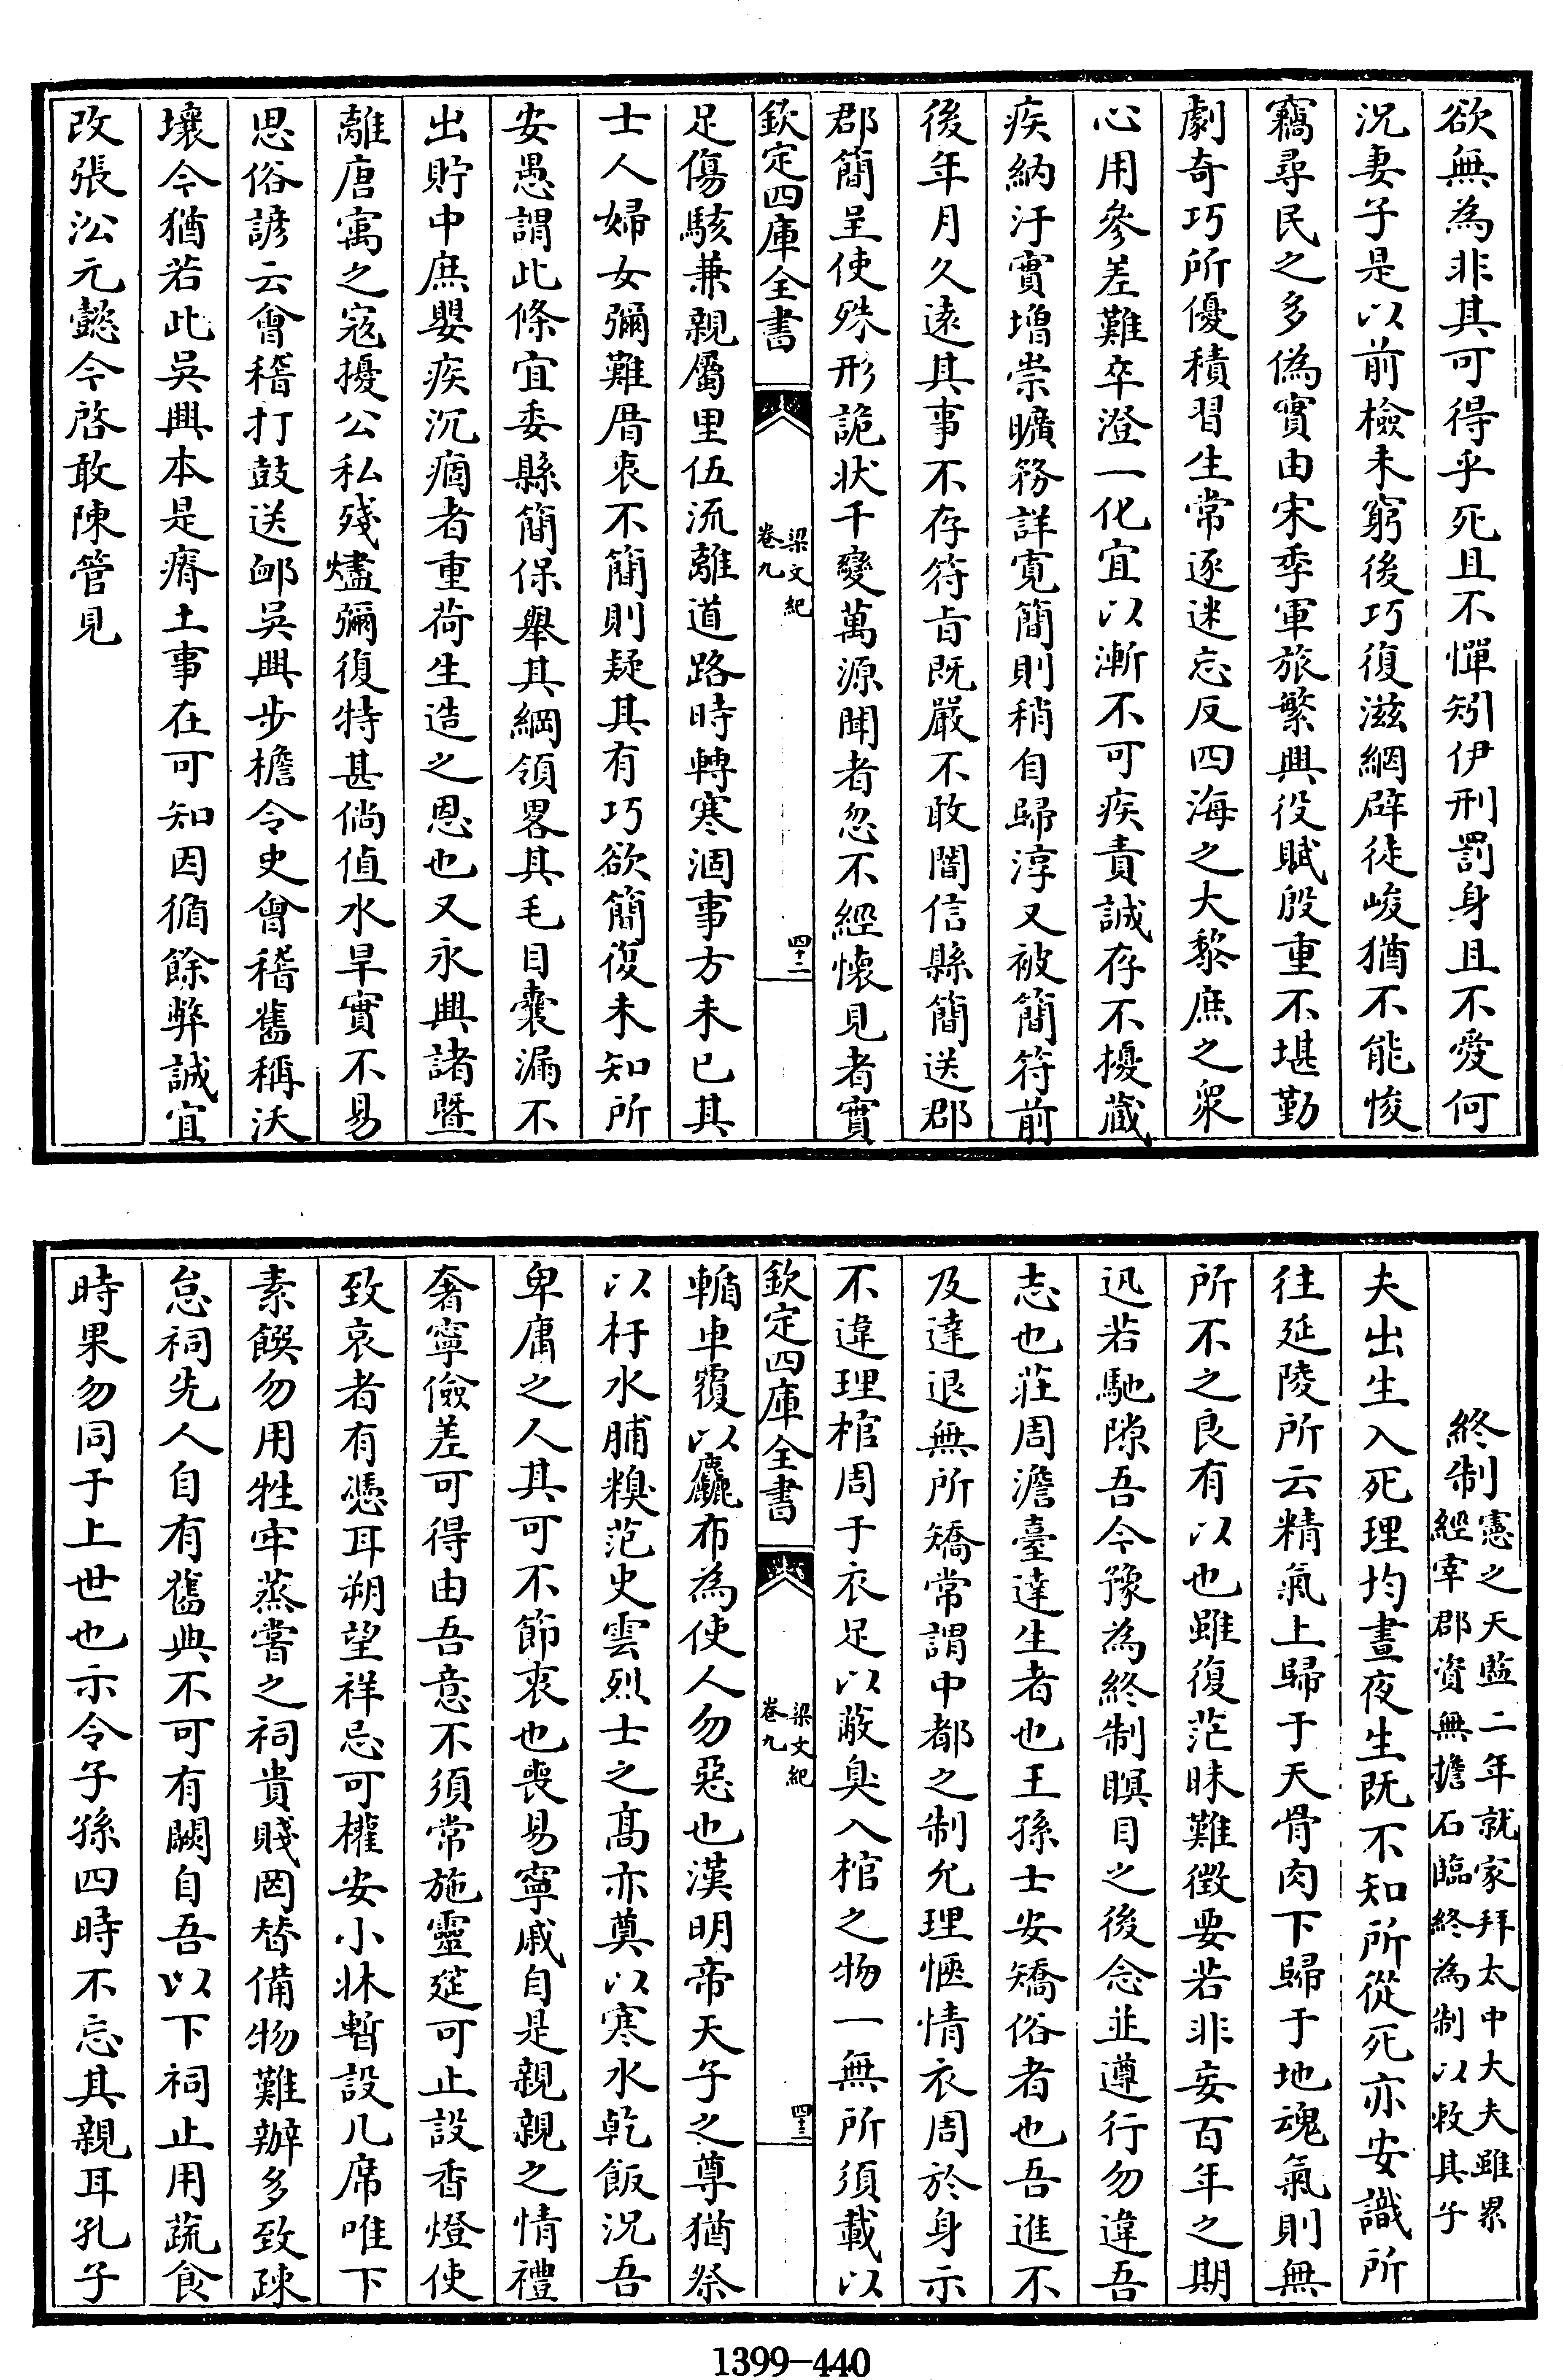 欲無為非其可得乎死且不憚矧伊刑罰身且不愛何
況妻子是以前檢未窮後巧復滋網辟徒峻猶不能悛
竊尋民之多偽實由宋季軍旅繁興役賦殷重不堪勤
劇奇巧所優積習生常遂迷忘反四海之大黎庶之衆
心用參差難卒澄一化宜以漸不可疾責誠存不擾藏
疾納汙實增崇曠務詳寛簡則稍自歸淳又被簡符前
後年月久遠其事不存符㫖既嚴不敢闇信縣簡送郡
郡簡呈使殊形詭狀千變萬源聞者忽不經懷見者實
欽定四庫全書
梁文紀
卷九
四十二
足傷駭兼親屬里伍流離道路時轉寒涸事方未已其
士人婦女彌難厝衷不簡則疑其有巧欲簡復未知所
安愚謂此條宜委縣簡保舉其綱領畧其毛目囊漏不
出貯中庶嬰疾沉痼者重荷生造之恩也又永興諸暨
離唐㝢之寇擾公私殘燼彌復特甚倘值水旱實不易
思俗諺云會稽打鼓送䘏吳興步檐令史會稽舊稱沃
壤今猶若此吳興本是瘠土事在可知因循餘弊誠宜
改張沿元懿今啓敢陳管見
終制憲之天監二年就家拜太中大夫雖累
經宰郡資無擔石臨終為制以敕其子
夫出生入死理均晝夜生既不知所從死亦安識所
往延陵所云精氣上歸于天骨肉下歸于地魂氣則無
所不之良有以也雖復茫昧難徵要若非妄百年之期
迅若馳隙吾今豫為終制瞑目之後念並遵行勿違吾
志也莊周澹臺達生者也王孫士安矯俗者也吾進不
及達退無所矯常謂中都之制允理愜情衣周於身示
不違理棺周于衣足以蔽臭入棺之物一無所須載以
欽定四庫全書
梁文紀
卷九
四十三
輴車覆以麤布為使人勿惡也漢明帝天子之尊猶祭
以杅水脯糗范史雲烈士之髙亦奠以寒水乾飯況吾
卑庸之人其可不節衷也喪易寧戚自是親親之情禮
奢寧儉差可得由吾意不須常施靈筵可止設香燈使
致哀者有憑耳朔望祥忌可權安小牀暫設几席唯下
素饌勿用牲牢蒸嘗之祠貴賤罔替備物難辦多致疎
怠祠先人自有舊典不可有闕自吾以下祠止用蔬食
時果勿同于上世也示令子孫四時不忘其親耳孔子
1399-440